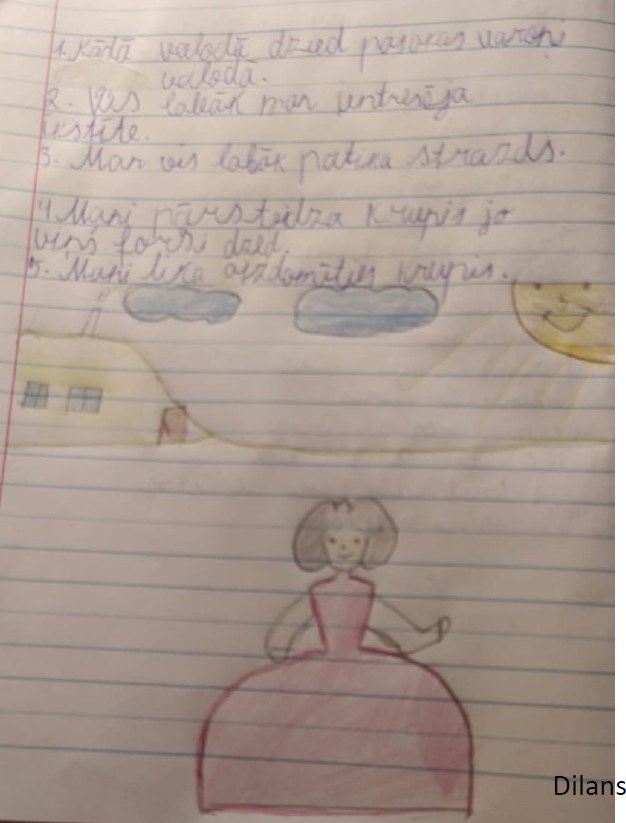 1. Kādā valodā dzied pasakas varoņi
valodā.
2. Vis labāk man intresēja
īkstīte.
3. Man vis labāk patika strazds.
4. Mani pārsteidza krupis jo
viņš forši dzied.
5. Mani lika aizdomāties krupis.
Dilans